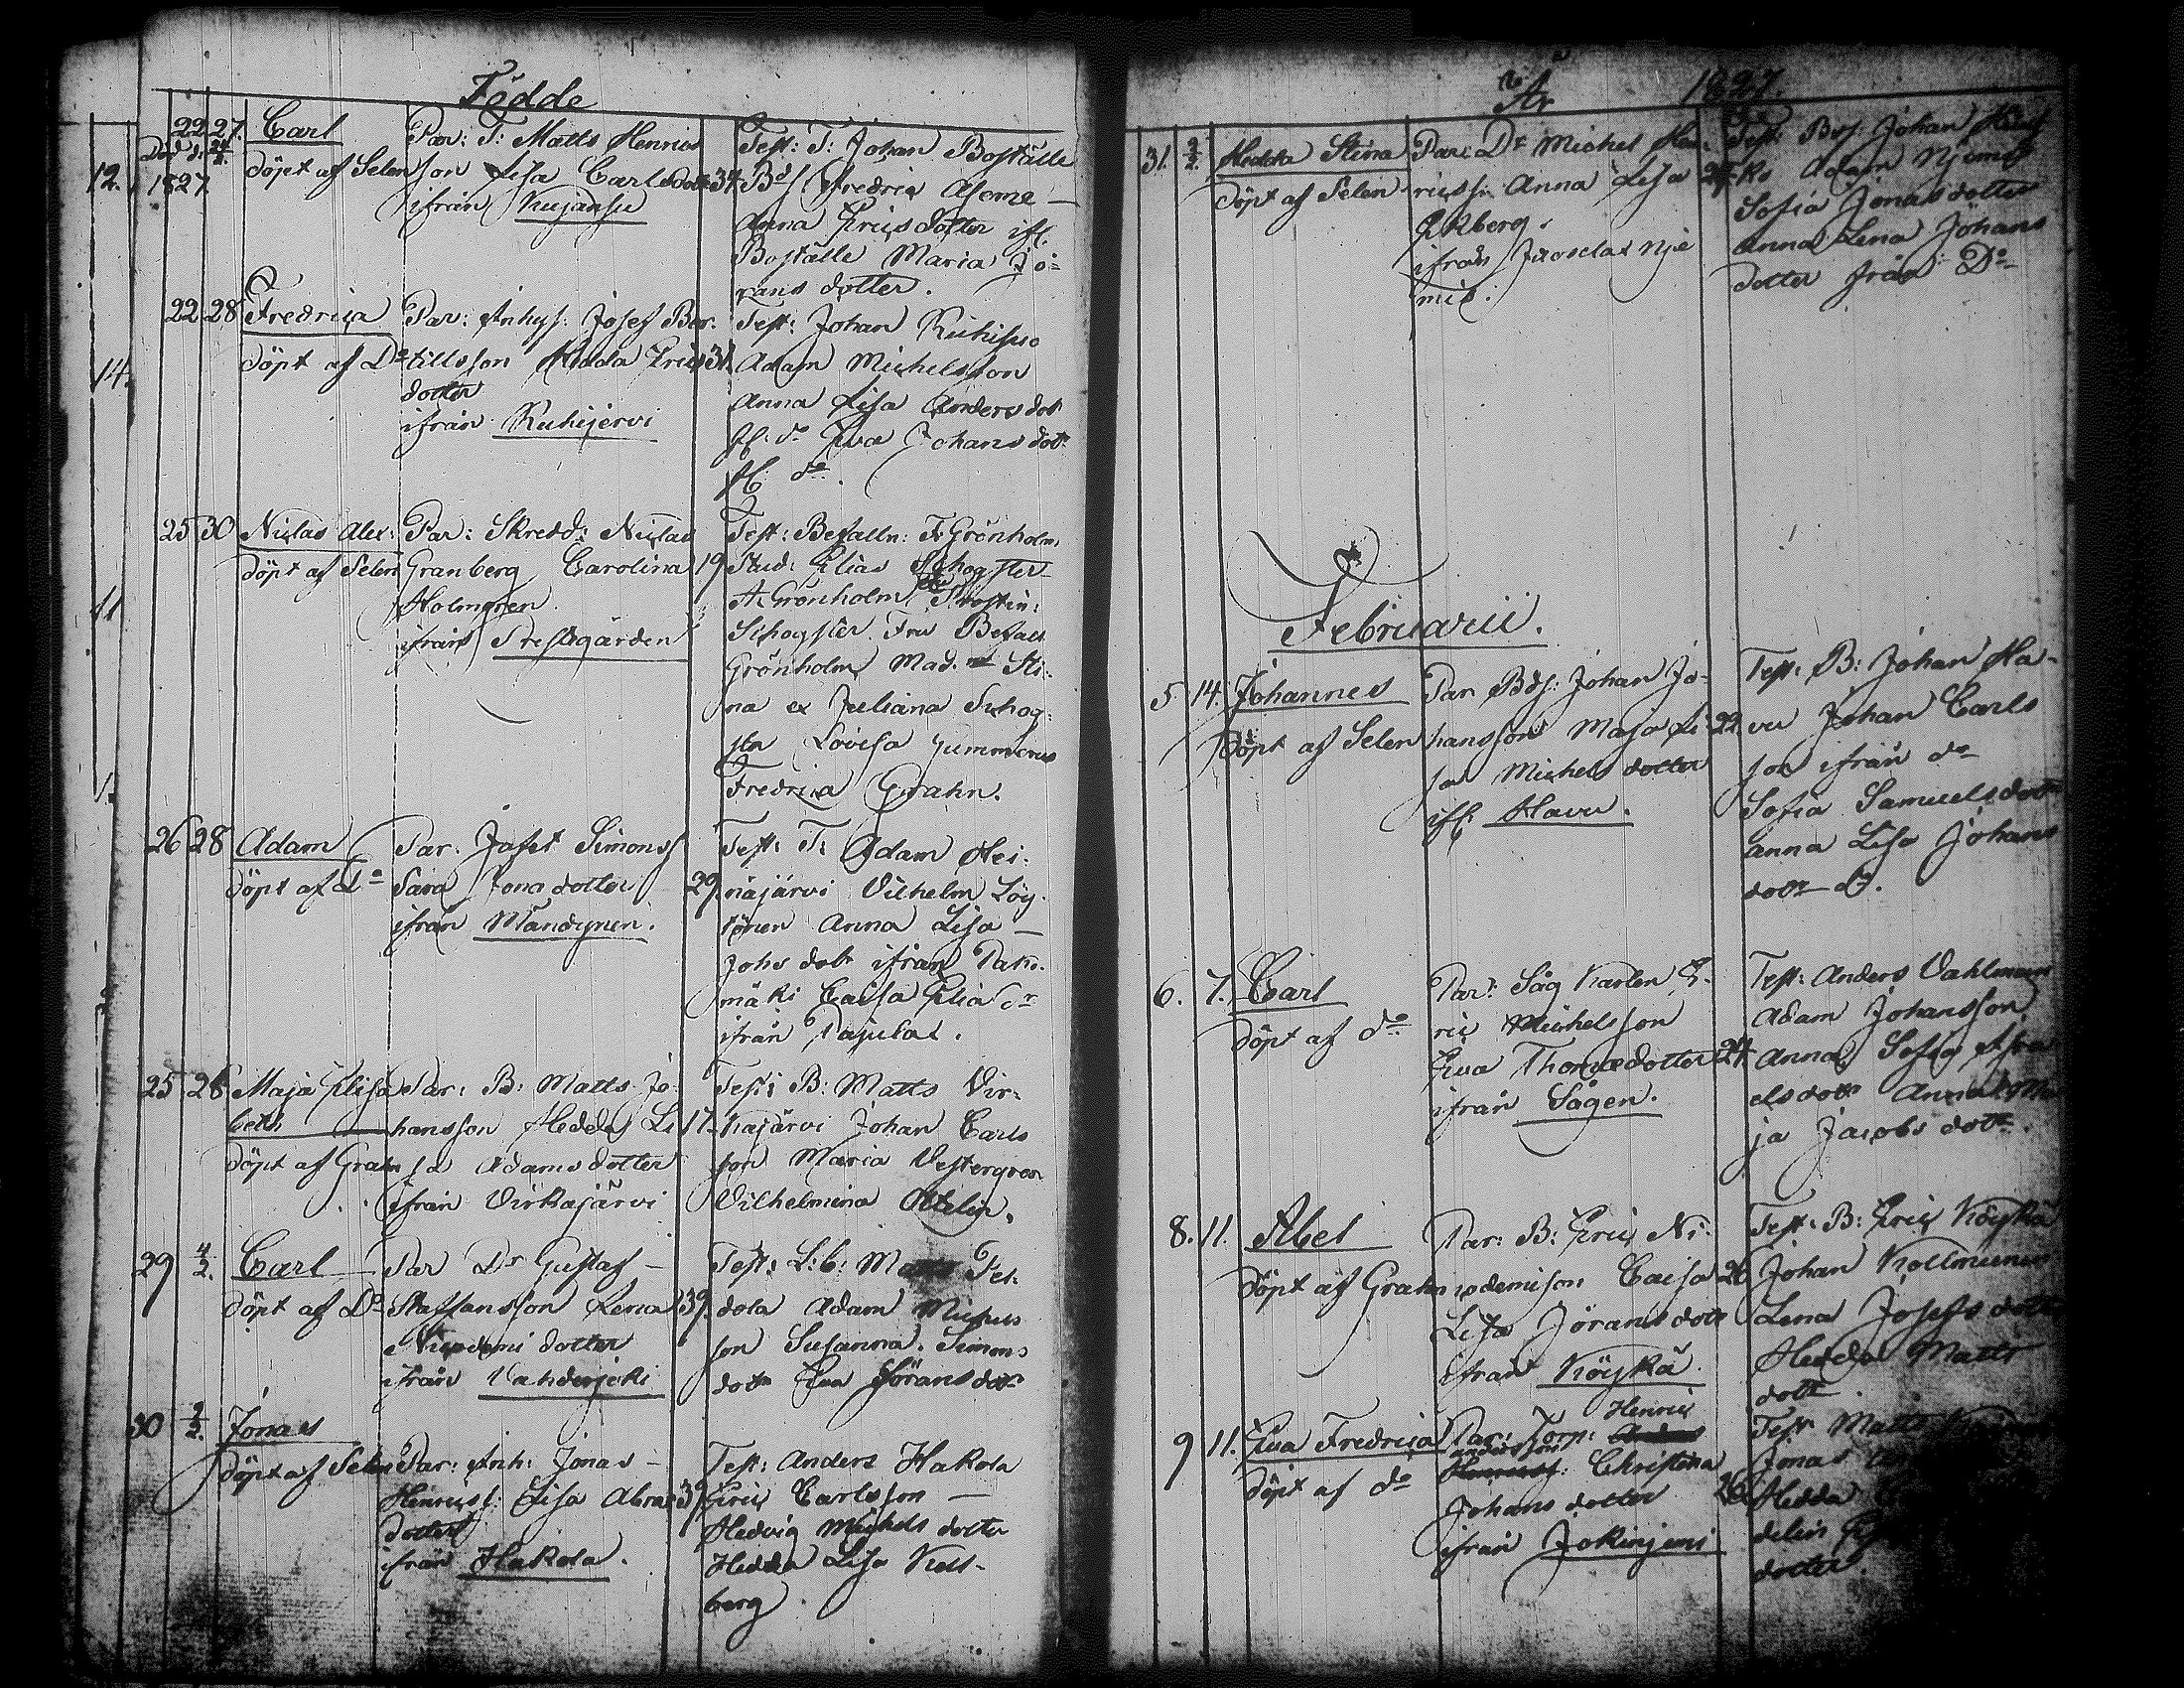 Födde
22 27. Carl
Död d. 24/2. 1827
12.
döpt af Selen
Par: T: Matts Henrics
son Lisa Carlsdott 34
ifrån Kujansu
Test: T: Johan Boställe
Bds Fredric Aseme
Anna Ericsdotter ifl.
Boställe Maria Jö-
rans dotter.
22 28 Fredrica
14.
döpt af Do
Par: Inhys: Josef Ber-
tillsson Hedda Erics 31
dotter
ifrån Ruhijervi
Test: Johan Ruhisuo
Adam Michelsson
Anna Lisa Anders dot
ifl. do Eva Johans dotr
ifl. do.
25 30 Niclas Alex:
11
döpt af Selen
Par: Skredd: Niclas
Granberg Carolina 19
Holmgren
ifrån Prestgården
Test: Befalln: F. Grönholm
Stud: Elias Schogster
A. Grönholm Prostin:
Schogster Fru Befall
Grönholm Mad. Sti-
na ex Juliana Schog-
ster Lovisa Gummerus
Fredrica Grahn.
26 28 Adam
döpt af Do
Par: Jafet Simonss
Sara Jona dotter 29
ifrån Mändynen.
Test: T: Adam Hei-
näjärvi Vilhelm Löy-
tönen Anna Lisa
Johs dotr ifrån Pako-
mäki Caisa Elia dr
ifrån Pajulat.
25 28 Maja Elisa
beth
döpt af Grahn
Par: B: Matts Jo-
hansson Hedda Li 17.
sa Adams dotter
ifrån Virkajärvi
Test: B: Matts Vir-
kajärvi Johan Carls
son Maria Vestergren
Vilhelmina Avelin.
29 4/2. Carl
döpt af Do
Par Dr Gustaf
Staffansson Lena 39.
Nicodemi dotter
ifrån Vahderjoki
Test: L:b: Matts Pel-
dola Adam Michels
son Susanna Simons
dotr Eva Jörans dotr
30 2/2. Jonas
döpt af Selen
Par: Inh: Jonas
Henricss: Lisa Abra 39
dotter
ifrån Hakola.
Test: Anders Hakola
Eric Carlsson
Hedvig Michels dotter
Hedda Lisa Kell-
berg.
År 1827.
31. 2/2. Hedda Stina
döpt af Selen
Par: Dr Michel Hen-
ricss: Anna Lisa 25
Ekberg.
ifrån Juoselas Nie
mis.
Test: Bds: Johan
ko Adam Njemis
Sofia Jonas dotter
Anna Lena Johans
dotter från Do
Februarii.
5 14. Johannes
döpt af Selen
Par Bds: Johan Jo-
hansson Maja Li 22
sa Michels dotter
ifl. Havu.
Test: B: Johan Ha-
vu Johan Carls
son ifrån do
Sofia Samuelsdotr
Anna Lisa Johans
dotr do.
6. 7. Carl
döpt af do
Par: Såg Karlen E-
ric Michelsson
Eva Thomæ dotter 24
ifrån Sågen.
Test: Anders Vahlman
Adam Johansson
Anna Sofia Isra
elsdotr Anna Ma
ja Jacobs dotr.
8. 11. Abel
döpt af Grahn
Par: B: Eric Ni-
codemison Caisa 26
Lisa Jörans dotr
ifrån Köykä
Test: B: Eric Köykä
Johan Kollmiinen
Lena Josefs dotter
Hedda Matts
dotr.
9 11. Eva Fredrica
döpt af do
Henric
Par: Torp:
Andersson
Christina
Johans dotter 26
ifrån Jokinjemi
Test Matts
Jonas
Hedda
dotter.